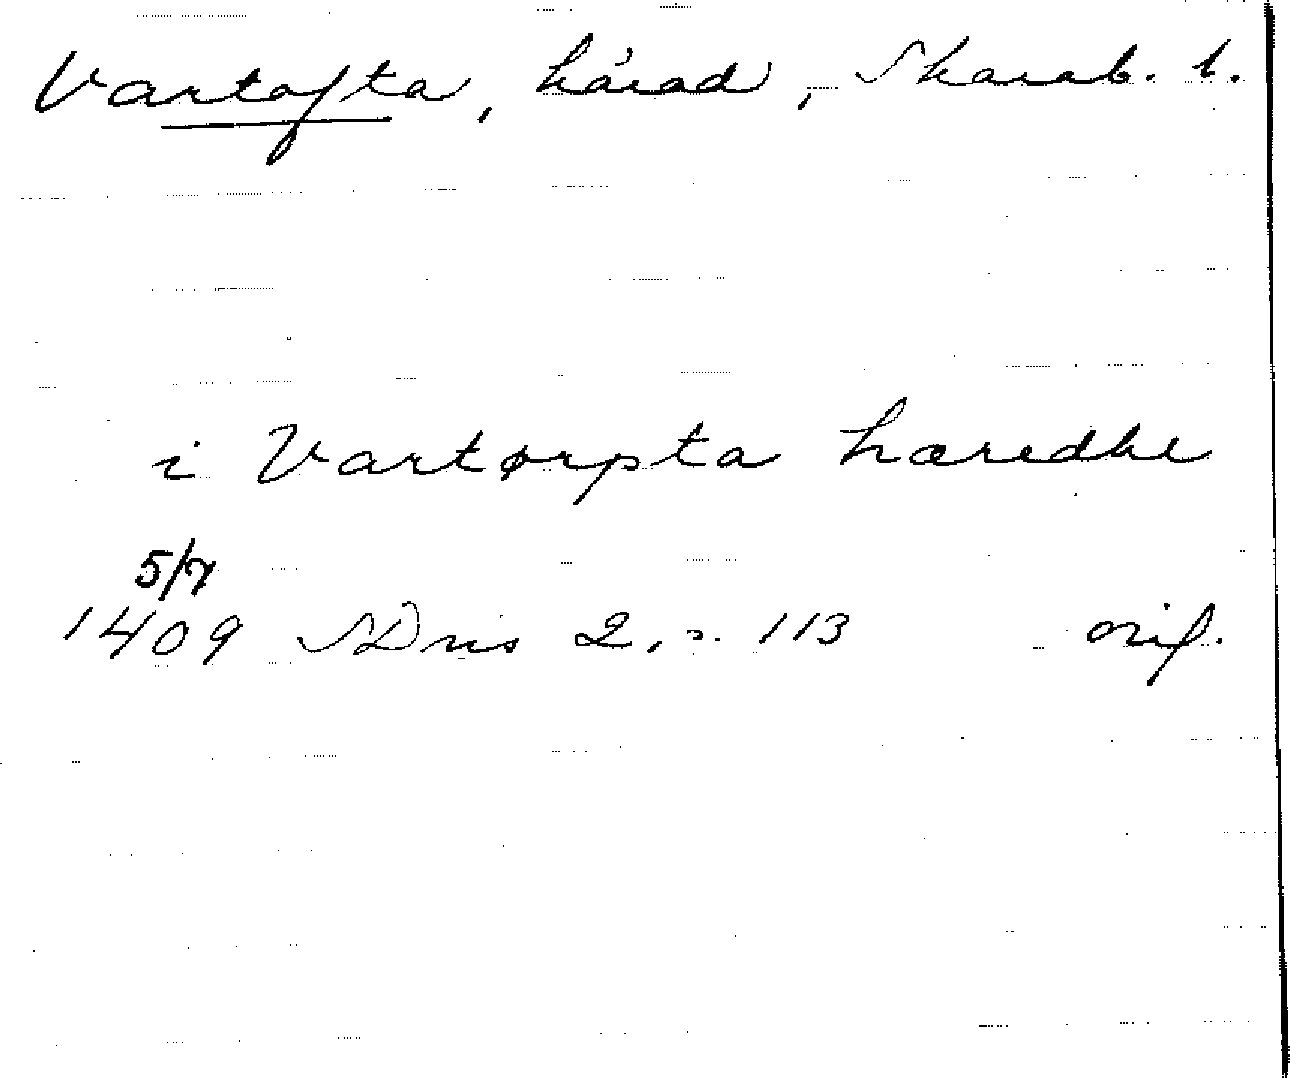 Vartofta, härad, Skarab. l.
i Vartørpta hæredhe
5/7
1409 SDns 2, s. 113 orig.